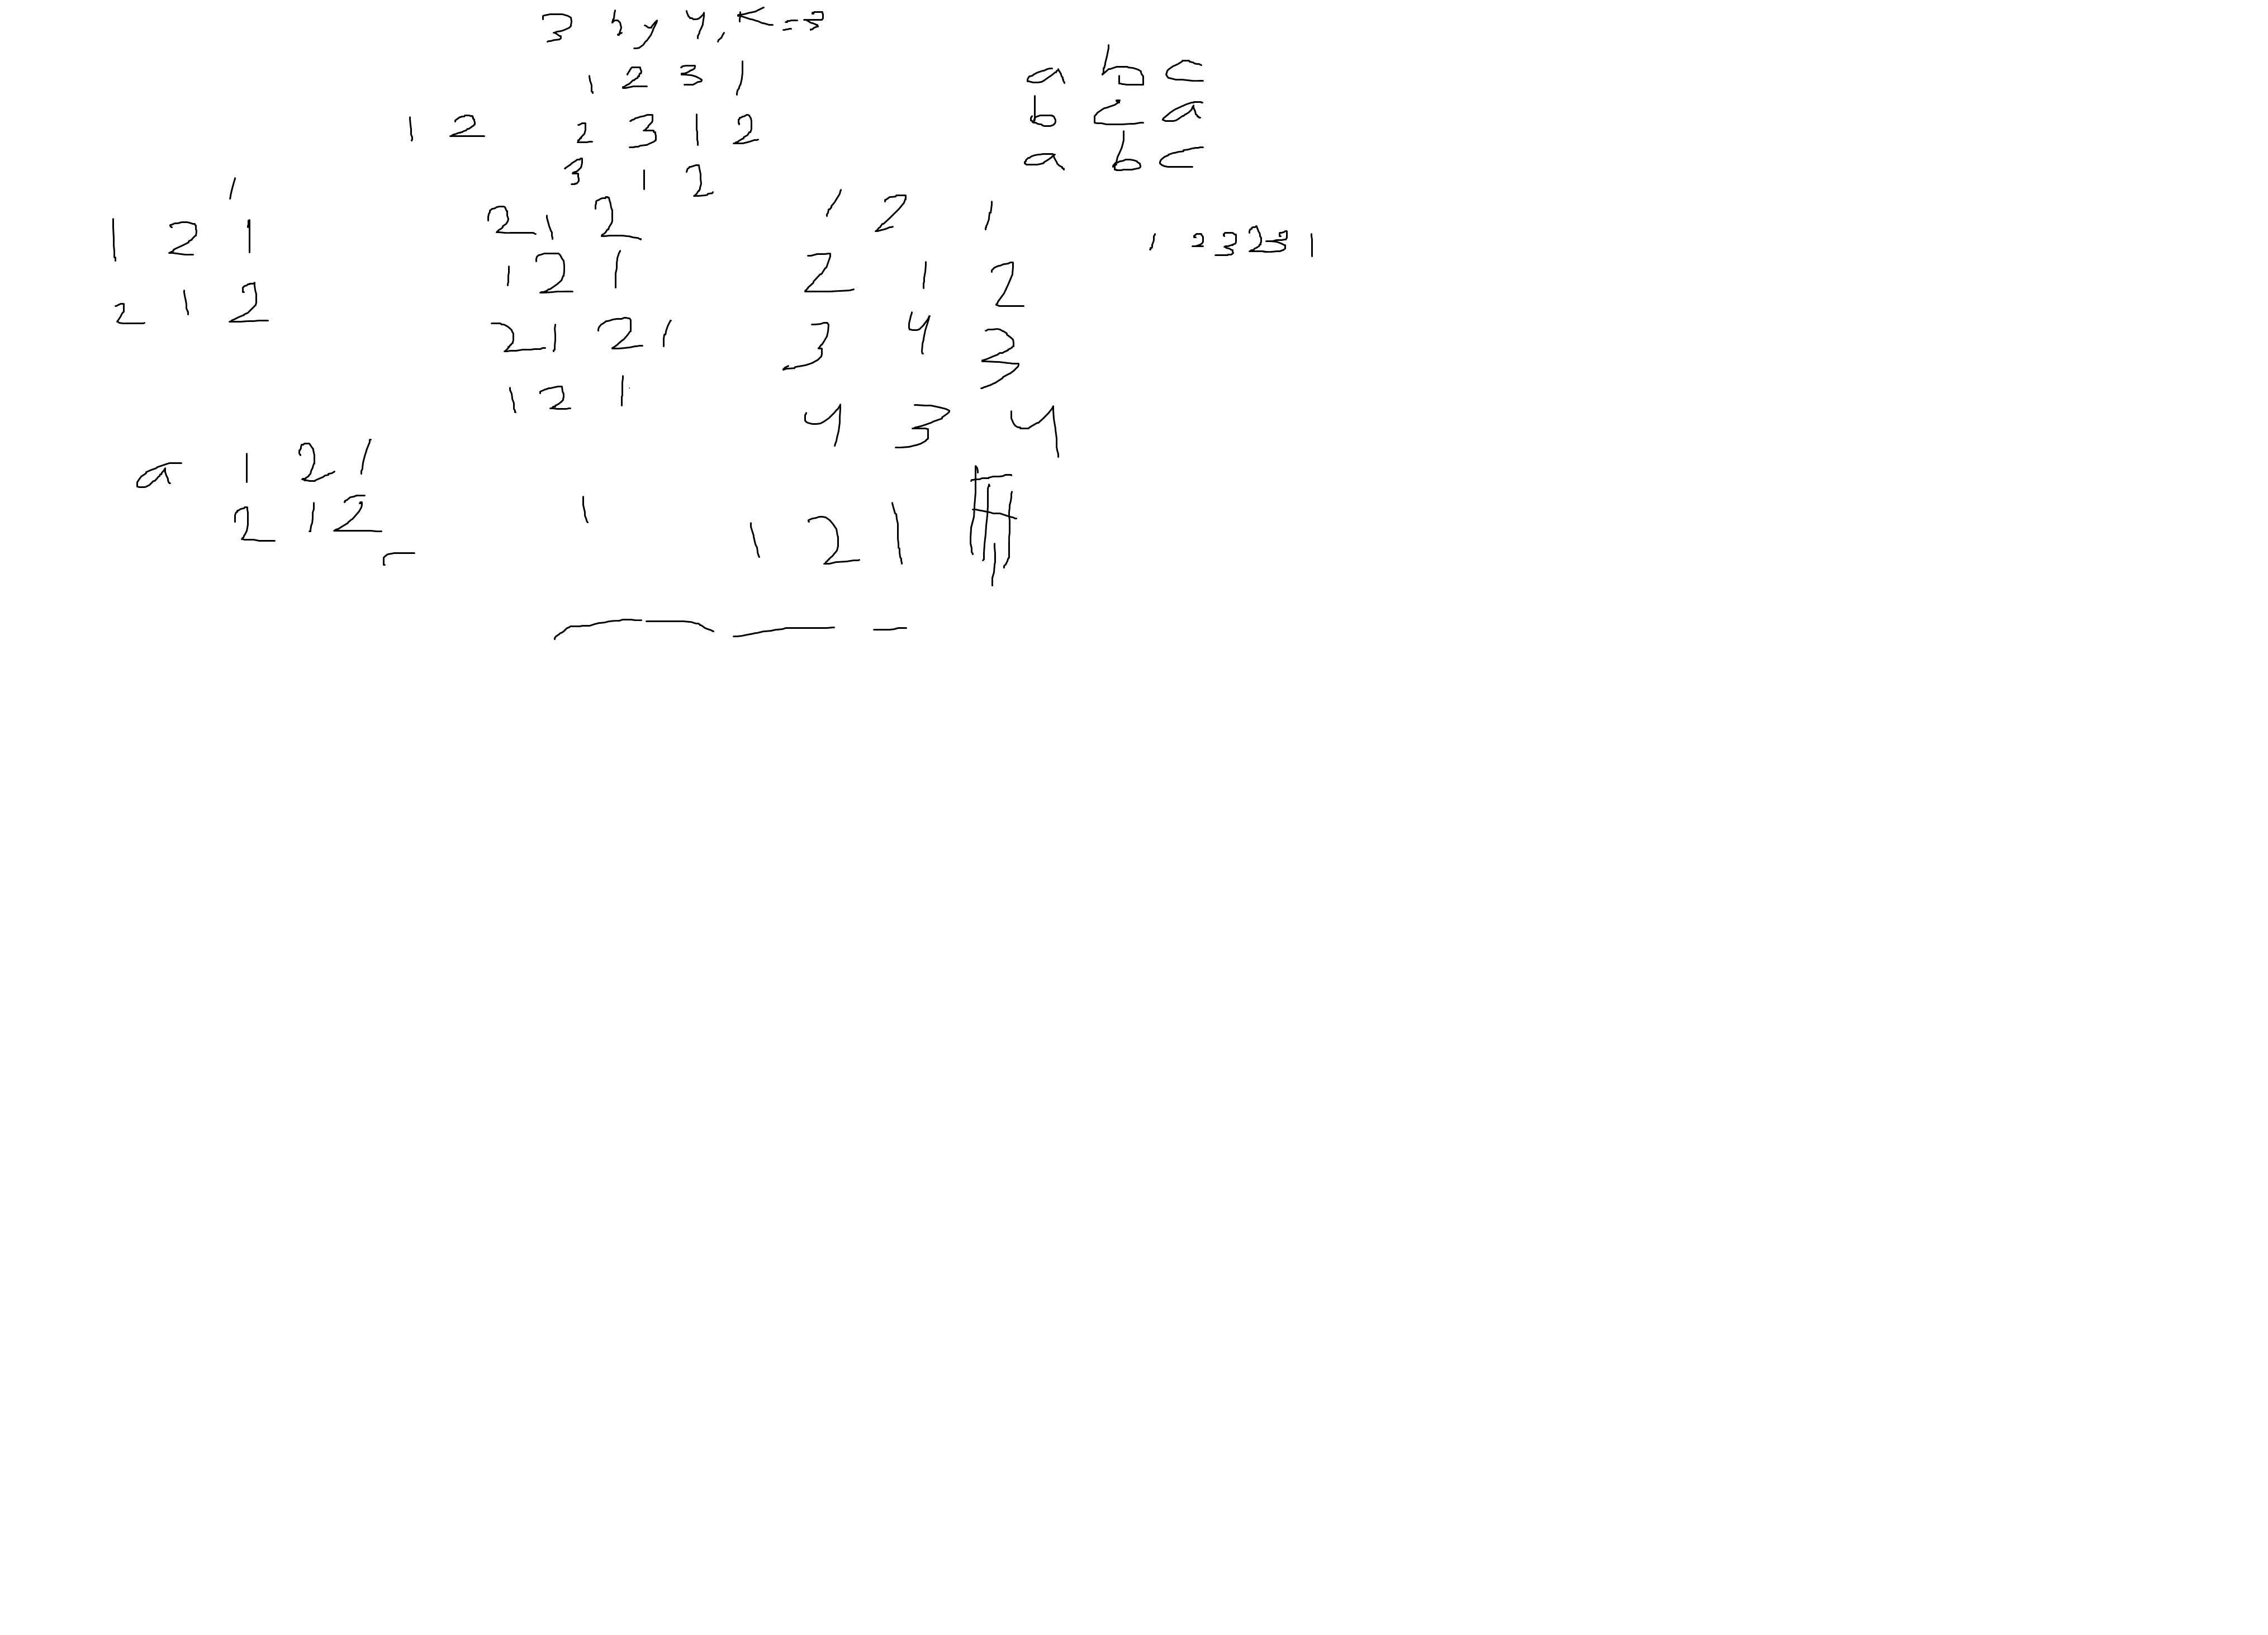 3 by 4, k=3
1 2 3 1
2 3 1 2
3 1 2
a b c
b c a
a b c
1 2
1
1 2 1
2 1 2
2 1 2
1 2 1
2 1 2 1
1 2 1
1 2 1
2 1 2
3 4 3
4 3 4
1 2 3 2 3 1
a 1 2 1
2 1 2
1
1 2 1